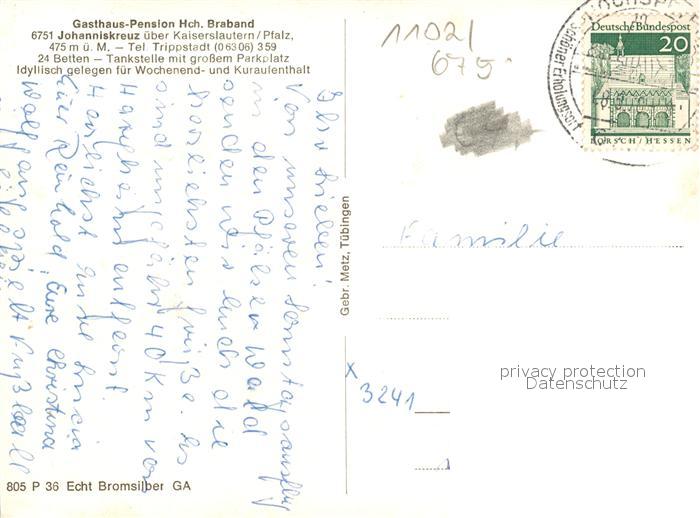 Gasthaus-Pension Hch. Braband
6751 Johanniskreuz über Kaiserslautern/Pfalz,
475 m ü. M. — Tel. Trippstadt (06306) 359
24 Betten — Tankstelle mit großem Parkplatz
Idyllisch gelegen für Wochenend- und Kuraufenthalt
Ihr Lieben!
Von unserem Sonntagsausflug
in den Pfälzer Wald
senden wir Euch die
herzlichsten Grüße.
sind ungefähr 40 Km von
entfernt.
Herzlichst Eure
Euer Reinhold, Eure Christina
Wolfgang spielt Fußball
805 P 36 Echt Bromsilber GA
Gebr. Metz, Tübingen
11021
675
Deutsche Bundespost
20
LORSCH/HESSEN
schöner Erholung
Familie
privacy protection
Datenschutz
x
3241